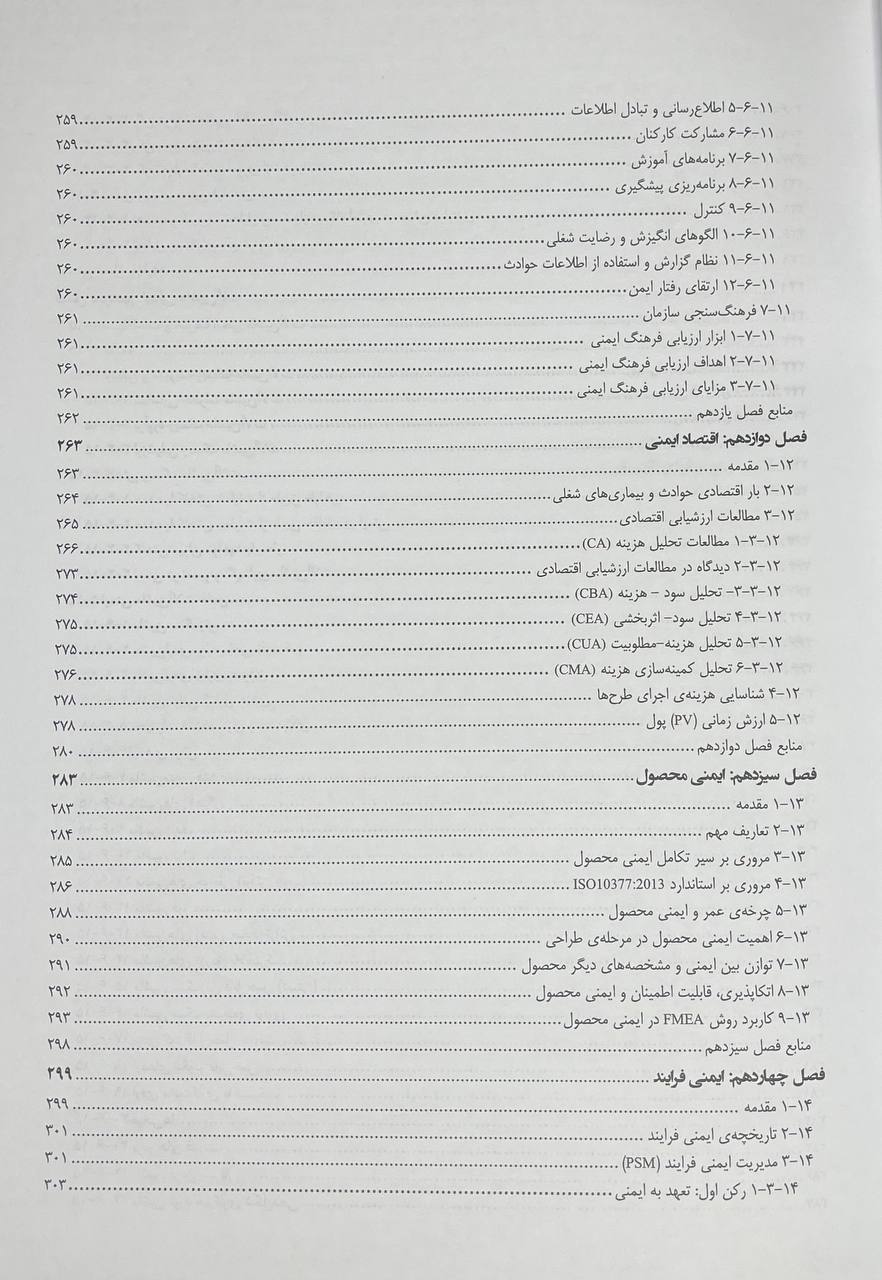 ۱۱-۶-۵ اطلاع‌رسانی و تبادل اطلاعات ........ ۲۵۹
۱۱-۶-۶ مشارکت کارکنان ........ ۲۵۹
۱۱-۶-۷ برنامه‌های آموزش ........ ۲۶۰
۱۱-۶-۸ برنامه‌ریزی پیشگیری ........ ۲۶۰
۱۱-۶-۹ کنترل ........ ۲۶۰
۱۱-۶-۱۰ الگوهای انگیزش و رضایت شغلی ........ ۲۶۰
۱۱-۶-۱۱ نظام گزارش و استفاده از اطلاعات حوادث ........ ۲۶۰
۱۱-۶-۱۲ ارتقای رفتار ایمن ........ ۲۶۰
۱۱-۷ فرهنگ‌سنجی سازمان ........ ۲۶۱
۱۱-۷-۱ ابزار ارزیابی فرهنگ ایمنی ........ ۲۶۱
۱۱-۷-۲ اهداف ارزیابی فرهنگ ایمنی ........ ۲۶۱
۱۱-۷-۳ مزایای ارزیابی فرهنگ ایمنی ........ ۲۶۱
منابع فصل یازدهم ........ ۲۶۲
فصل دوازدهم: اقتصاد ایمنی ........ ۲۶۳
۱۲-۱ مقدمه ........ ۲۶۳
۱۲-۲ بار اقتصادی حوادث و بیماری‌های شغلی ........ ۲۶۴
۱۲-۳ مطالعات ارزشیابی اقتصادی ........ ۲۶۵
۱۲-۳-۱ مطالعات تحلیل هزینه (CA) ........ ۲۶۶
۱۲-۳-۲ دیدگاه در مطالعات ارزشیابی اقتصادی ........ ۲۷۳
۱۲-۳-۳- تحلیل سود – هزینه (CBA) ........ ۲۷۴
۱۲-۳-۴ تحلیل سود- اثربخشی (CEA) ........ ۲۷۵
۱۲-۳-۵ تحلیل هزینه-مطلوبیت (CUA) ........ ۲۷۵
۱۲-۳-۶ تحلیل کمینه‌سازی هزینه (CMA) ........ ۲۷۶
۱۲-۴ شناسایی هزینه‌ی اجرای طرح‌ها ........ ۲۷۸
۱۲-۵ ارزش زمانی (PV) پول ........ ۲۷۸
منابع فصل دوازدهم ........ ۲۸۰
فصل سیزدهم: ایمنی محصول ........ ۲۸۳
۱۳-۱ مقدمه ........ ۲۸۳
۱۳-۲ تعاریف مهم ........ ۲۸۴
۱۳-۳ مروری بر سیر تکامل ایمنی محصول ........ ۲۸۵
۱۳-۴ مروری بر استاندارد ISO10377:2013 ........ ۲۸۶
۱۳-۵ چرخه‌ی عمر و ایمنی محصول ........ ۲۸۸
۱۳-۶ اهمیت ایمنی محصول در مرحله‌ی طراحی ........ ۲۹۰
۱۳-۷ توازن بین ایمنی و مشخصه‌های دیگر محصول ........ ۲۹۱
۱۳-۸ اتکاپذیری، قابلیت اطمینان و ایمنی محصول ........ ۲۹۲
۱۳-۹ کاربرد روش FMEA در ایمنی محصول ........ ۲۹۳
منابع فصل سیزدهم ........ ۲۹۸
فصل چهاردهم: ایمنی فرایند ........ ۲۹۹
۱۴-۱ مقدمه ........ ۲۹۹
۱۴-۲ تاریخچه‌ی ایمنی فرایند ........ ۳۰۱
۱۴-۳ مدیریت ایمنی فرایند (PSM) ........ ۳۰۱
۱۴-۳-۱ رکن اول: تعهد به ایمنی ........ ۳۰۳